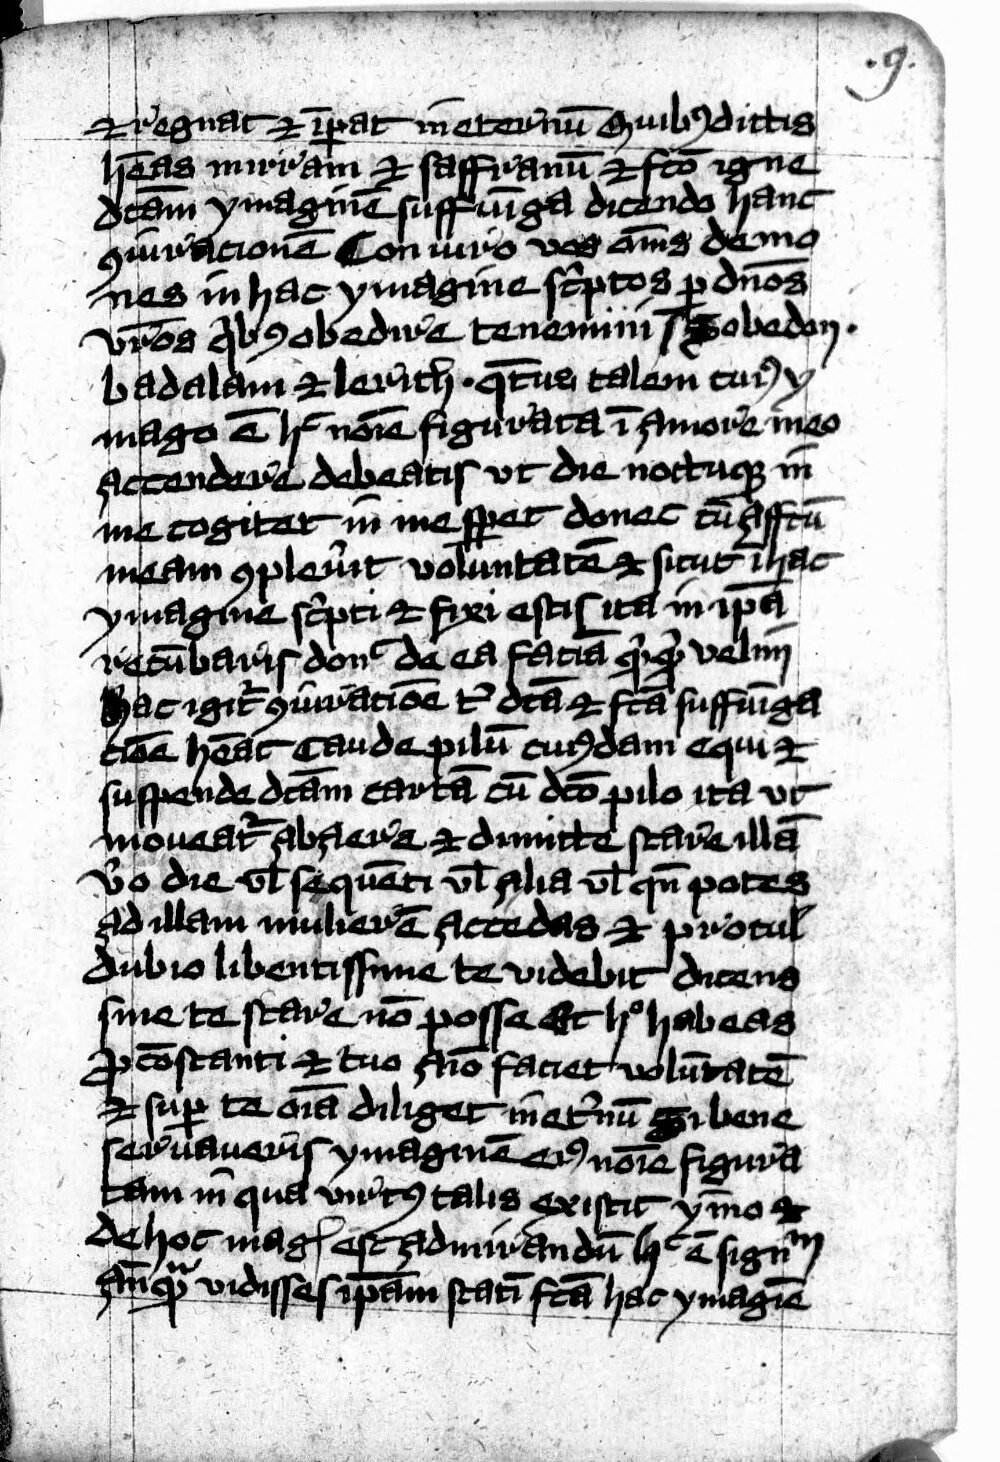 .9.
et regnat et īꝑat in eternū Quibꝰ dictis
hēas mirram et saffranū et fc̄o igne
dc̄am ymaginē suffūiga dicendo hanc
ꝯiuracionē Coniuro vos om̄s demo
nes in hac ymagine sc̄ptos ꝑ dn̄os
vr̄os qͥbꝰ obedire tenemini sobedon .
badalam et lerith . q̄tus talem cuiꝰ y
mago ē hͨ noīe figurata ī amore meo
accendere debeatis ut die noctuqꝫ in
me cogitet in me speret donec cū affc̄u
meam ꝯpleu̓it voluntatē et sicut ī hac
ymagine sc̓pti et fixi estis ita in ip̄a
recūbaris donͨ de ea faciā qͥcqͥd velim
Hac igit̓ ꝯiuratiōe t̓ dc̄a et fc̄a suffūiga
ciōe hēat Caude pilū cuiꝰdam equi et
suspende dc̄am cartā cū dc̄o pilo ita ut
moueat̓ ab aere et dimitte stare illā
v̓o die vl̄ sequēti vl̄ alia vl̄ qn̄ potes
ad illam mulierē accedas et procul
dubio libentissime te videbit dicens
sine te stare nō posse Et hͦ habeas
ꝓ cōstanti et tuo aīo faciet volūtatē
et suꝑ te oīa diliget in et̓nū si bene
servaveris ymaginē eiꝰ noīe figura
tam in qua virtꝰ talis existit ym̄o et
de hoc magͥ est admirandū hͨ ē signᵐ
an̄qͣ vidisses ip̄am statī fc̄a hac ymagīe